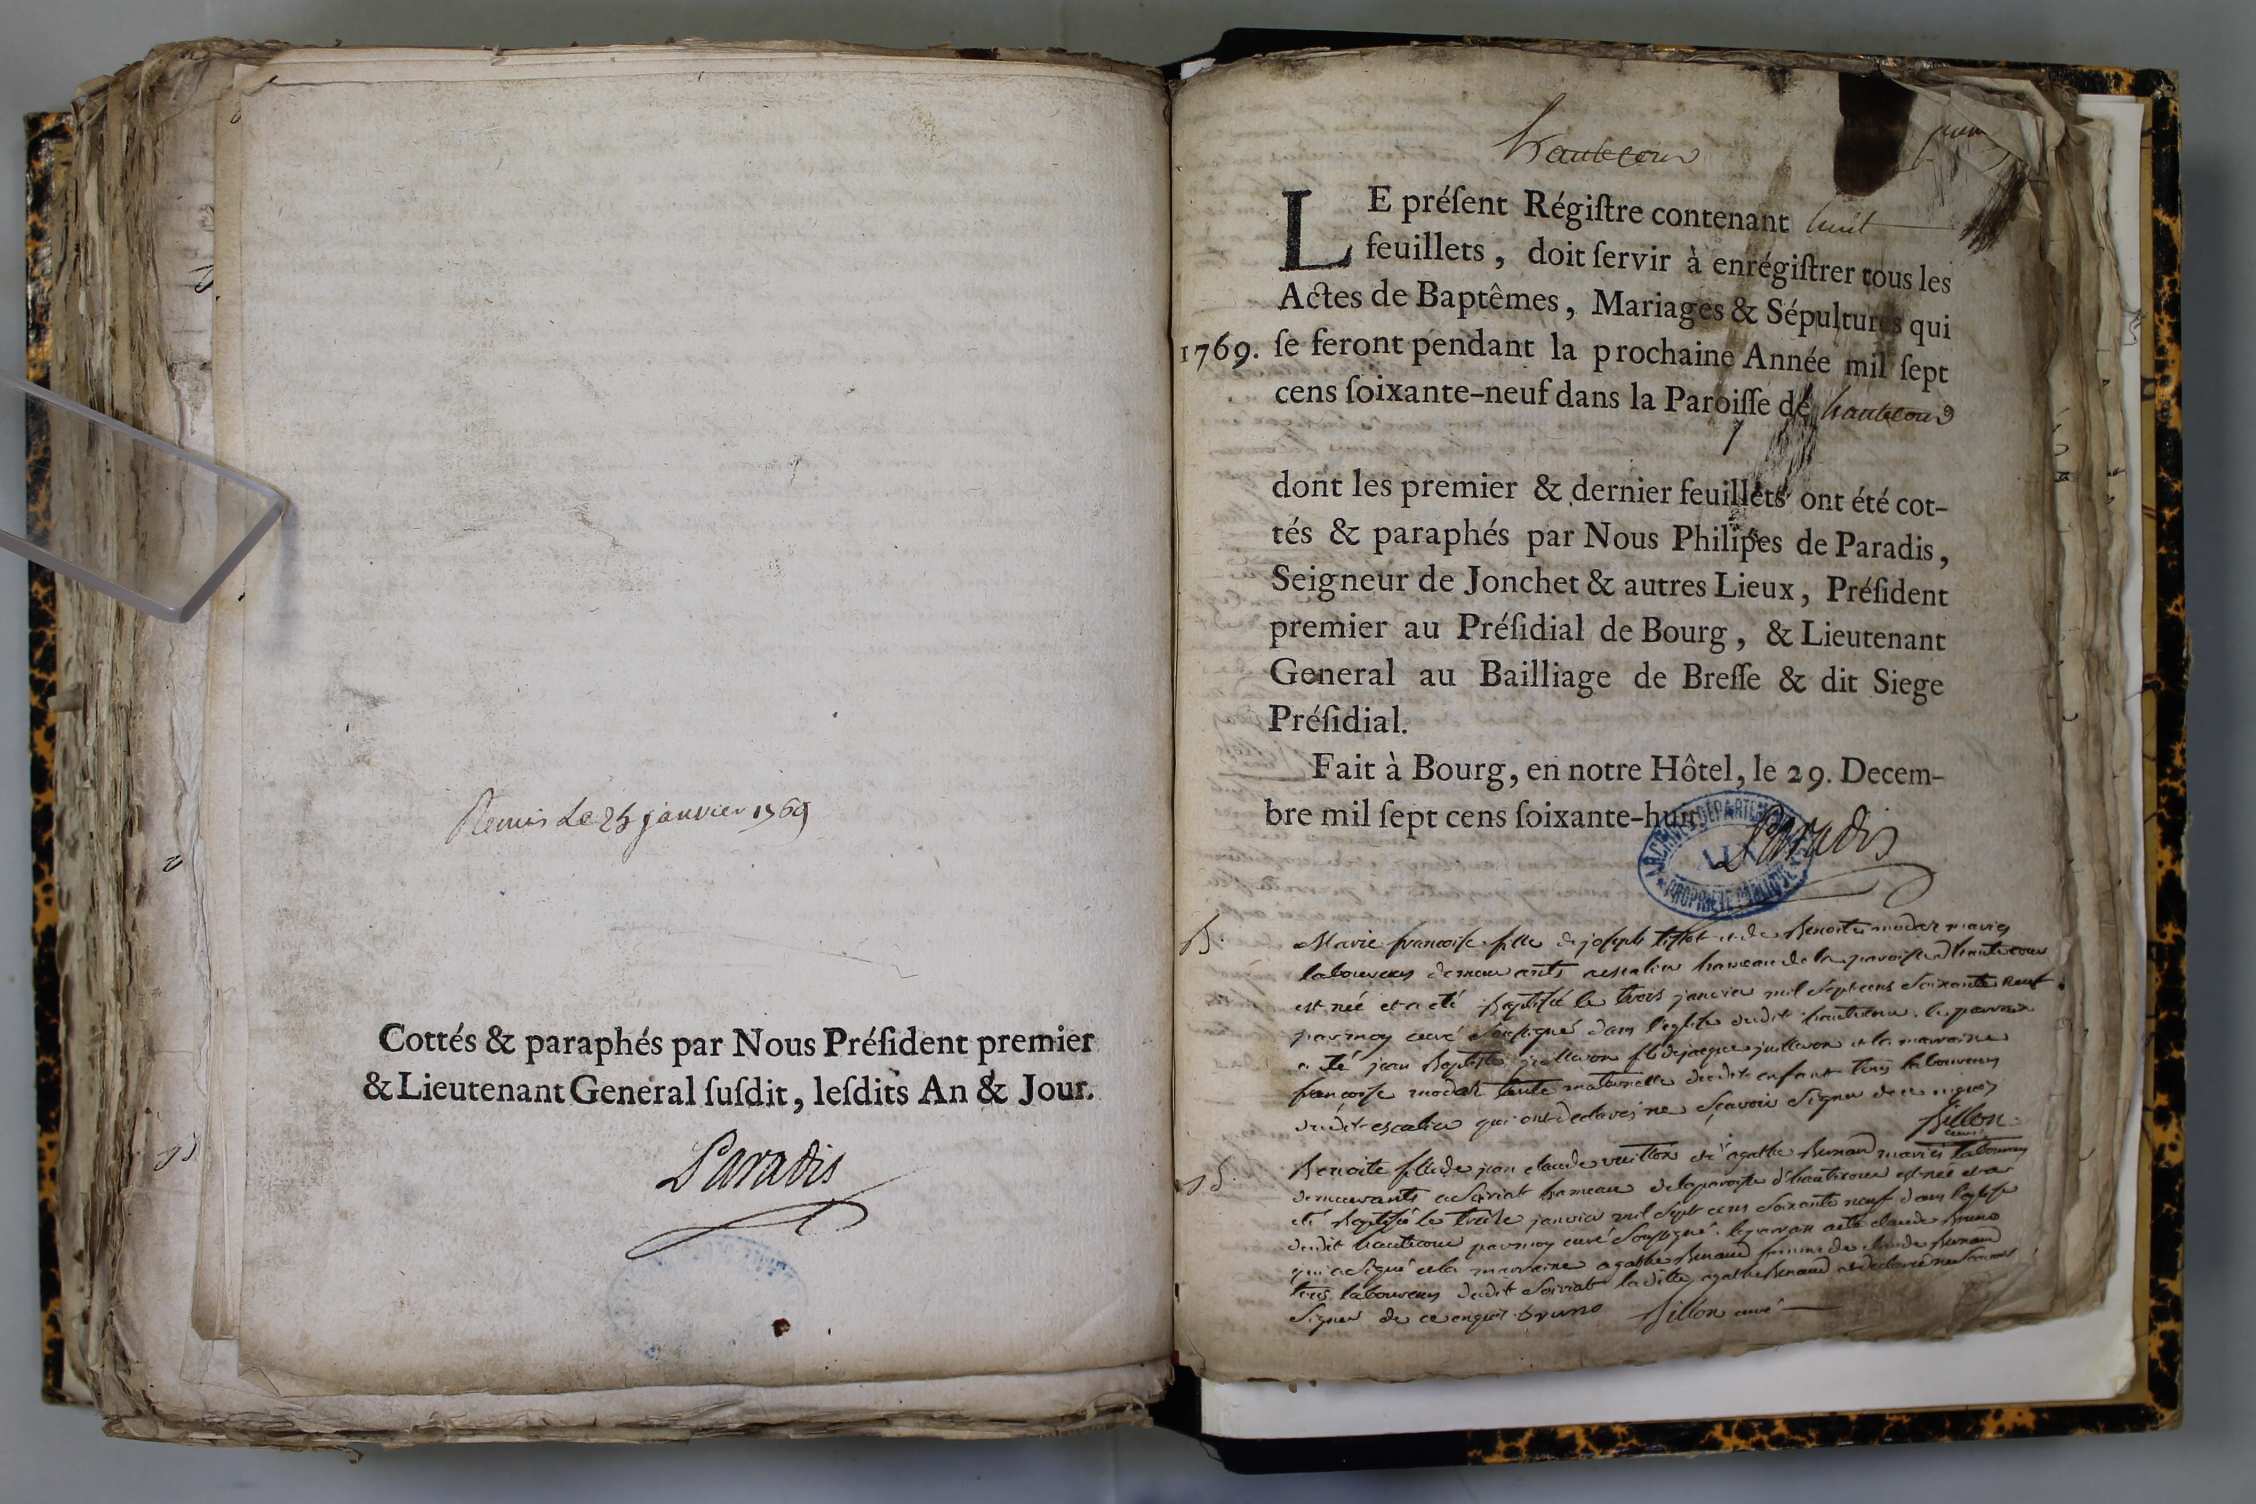 Remis Le 25 janvier 1769
Cottés & paraphés par Nous Préſident premier
& Lieutenant General ſuſdit, leſdits An & Jour.
Paradis
hautecour
LE préſent Régiſtre contenant huit
feuillets, doit ſervir à enrégiſtrer tous les
Actes de Baptêmes, Mariages & Sépultures qui
1769. ſe feront pendant la prochaine Année mil ſept
cens ſoixante-neuf dans la Paroiſſe de hautecour
dont les premier & dernier feuillets ont été cot-
tés & paraphés par Nous Philipes de Paradis,
Seigneur de Jonchet & autres Lieux, Préſident
premier au Préſidial de Bourg, & Lieutenant
General au Bailliage de Breſſe & dit Siege
Préſidial.
Fait à Bourg, en notre Hôtel, le 29. Decem-
bre mil ſept cens ſoixante-huit
Paradis
ARCHIVES DEPARTEMENTALES
AIN
PROPRIÉTÉ PUBLIQUE
B. Marie francoise fille de joseph tissot et de Benoite modaz mariés
laboureurs demeurants a escalier hameau de la paroisse d'hautecour
est née et a eté Baptisée le trois janvier mil sept cens soixante neuf
par moy curé soussigné dans l'eglise dudit hautecour. le parrain
a eté jean Baptiste juilleron fils de jacque juilleron et la marraine
francoise modaz tante maternelle dudit enfant tous laboureurs
dudit escalier qui ont declarés ne sçavoir signer de ce enquis
Billon curé
B. Benoite fille de jean claude vuillon et d'agathe Bernard mariés laboureurs
demeurants a Soiriat hameau de la paroisse d'hautecour est née et a
eté Baptisée le treize janvier mil sept cens soixante neuf dans l'eglise
dudit hautecour par moy curé soussigné. le parrain a eté claude Bruno
qui a signé et la marraine agathe Renaud femme de claude Bernard
tous laboureurs dudit Soiriat ladite agathe Renaud a declaré ne sçavoir
signer de ce enquis. Bruno Billon curé